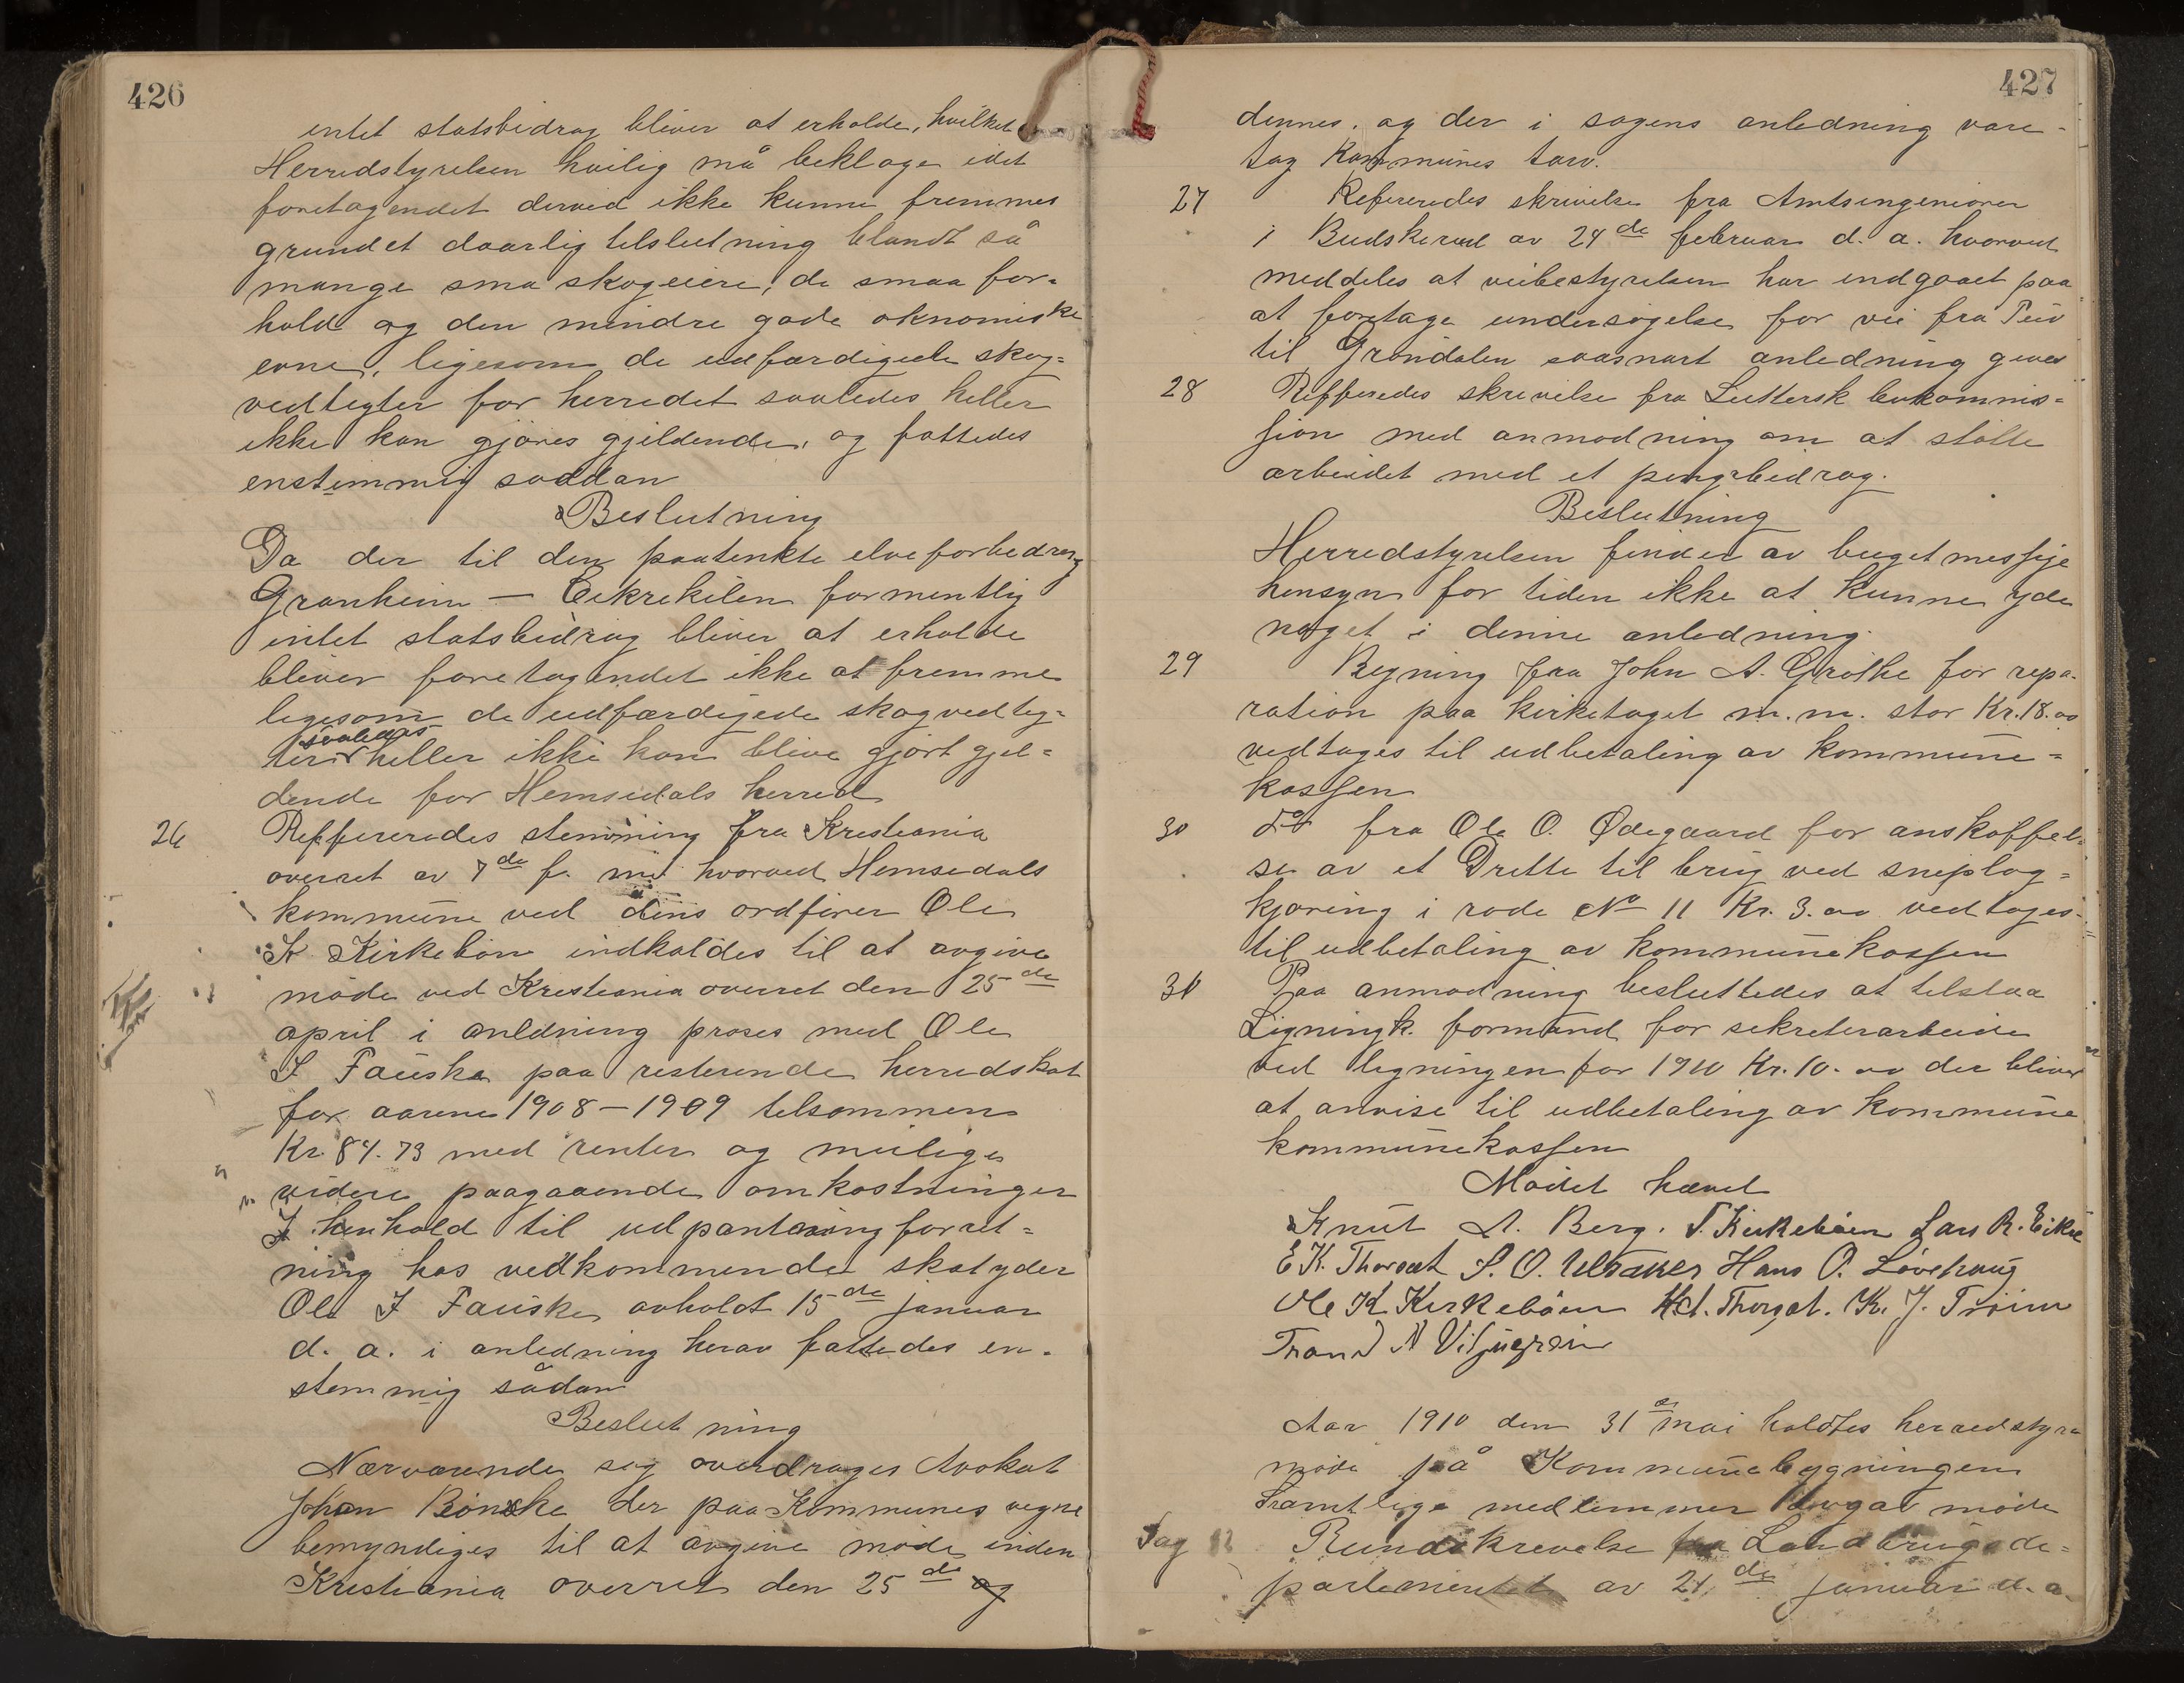 426
intet statsbidrag bliver at erholde, hvilket
Herredstyrelsen høilig må beklage idet
foretagendet derved ikke kunne fremmes
grundet daarlig tilslutning blandt så
mange sma skogeiere, de smaa for-
hold og den mindre gode øknomiske
evne, ligesom de udfærdigede skog-
vedtegter for herredet saaledes heller
ikke kan gjøres gjeldende, og fattedes
enstemmig saddan
Beslutning
Da der til den paatenkte elveforbedring
Granheim — Eikrekilen formentlig
intet statsbidrag bliver at erholde
bliver foretagendet ikke at fremme
ligesom de udfærdigede skogvedteg-
saaledes
ter heller ikke kan blive gjørt gjel-
dende for Hemsedals herred
26 Reffereredes stemning fra Kristiania
overret av 7de f. m. hvorved Hemsedals
kommune ved dens ordfører Ole
K Kirkebøen indkaldes til at avgive
møde ved Kristiania overret den 25de
april i anldning proses med Ole
I Fauske paa resterende herredskat
for aarene 1908–1909 tilsammen
Kr. 84.73 med renter og mulige
videre paagaaende omkostninger
I henhold til udpantningforret-
ning hos vedkommende skatyder
Ole I Fauske avholdt 15de januar
d. a. i anledning herav fattedes en-
stemmig sådan
Beslutning
Nærværende sag overdrages Avokat
Johan Bonske der paa Kommunes vegne
bemyndiges til at avgive møde inden
Kristiania overret den 25de og
427
dennes. og der i sagens anledning vare-
tag Kommunes tarv.
27 Refereredes skrivelse fra Amtsingeniøren
i Buskerud av 24de februar d. a. hvorved
meddeles at veibestyrelsen har indgaaet paa
at foretage undersøgelse for vei fra Tuv
til Grøndalen saasnart anledning gives
28 Refferedes skrivelse fra Luthersk bokommis-
sion med anmodning om at støtte
arbeidet med et pengebidrag.
Beslutning
Herredstyrelsen finder av buget messige
hensyn for tiden ikke at kunne yde
noget i denne anledning.
29 Regning fra John A. Grøthe for repa-
ration paa kirketaget m.m. stor Kr. 18.00
vedtages til udbetaling av kommune-
kassen
30 do fra Ole O. Ødegaard for anskaffel-
se av et Drette til brug ved sneplog-
kjøring i rode No 11 Kr. 3.00 vedtages
til udbetaling av kommunekassen
31 Paa anmodning besluttedes at tilstaa
Ligningk. formand for sekreterarbeide
ved ligningen for 1910 Kr. 10.00 der bliver
at anvise til udbetaling av kommune
kommunekassen
Mødet hævet
Knut A. Berg. T. Kirkebøen Lars R. Eikre
E K. Thorset S. O. Ulsaker Hans O. Løvehaug
Ole K Kirkebøen K. J. Trøim
Trond N
Aar 1910 den 31de mai holdtes herredstyre
møde på Kommunebygningen
Samtlige medlemmer avgav møde
Sag Rundskrevelse fra Landbrugsde-
partementet av 21de januar d. a.